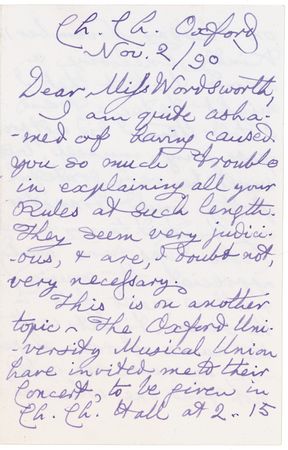 Ch. Ch. Oxford
Nov. 2/90
Dear Miss Wordsworth,
I am quite asha-
-med of having caused
you so much trouble
in explaining all your
Rules at such length.
They seem very judici-
-ous, & are, I doubt not,
very necessary.
This is on another
topic - The Oxford Uni-
-versity Musical Union
have invited me to their
Concert, to be given in
Ch. Ch. Hall at 2.15